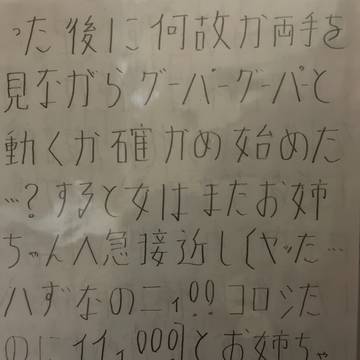 った後に何故か両手を
見ながらグーパーグーパーと
動くか確かめ始めた
…?すると女はまたお姉
ちゃんへ急接近し(ヤッた…
ハずなのニィ!!コロシた
のにイイィ000)とお姉ちゃ